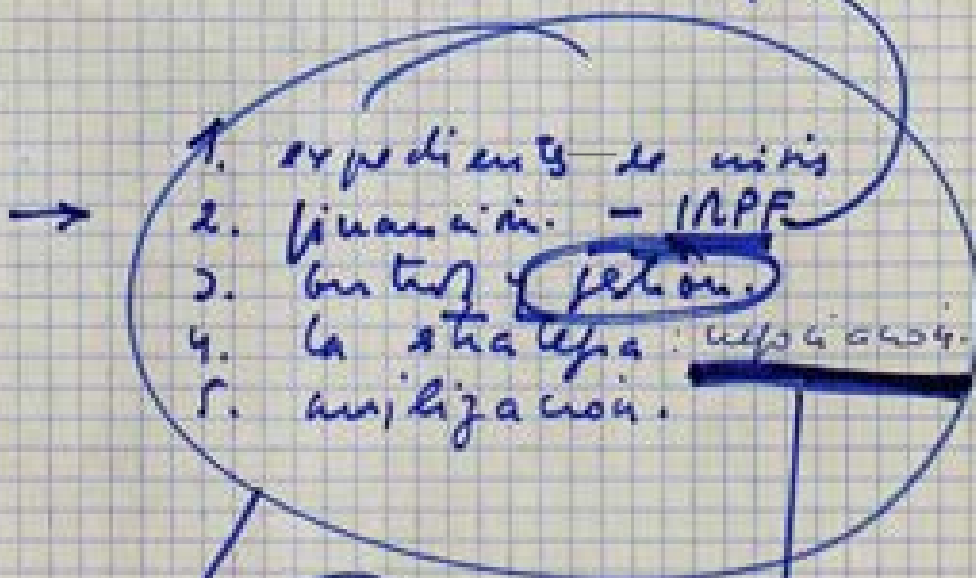 1. expedients de crisis
2. financiación. - IRPF
3. control y gestión.
4. la estrategia: negociación.
5. movilización.